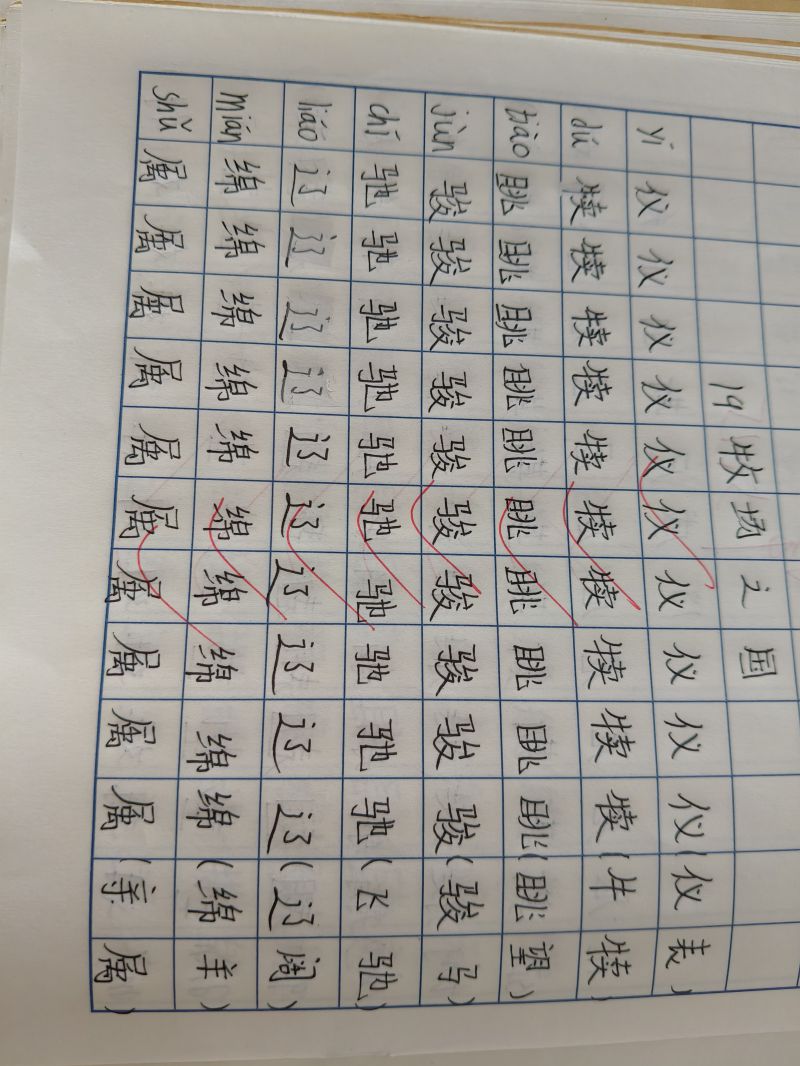 19 牧场之国
yí 仪仪仪仪仪仪仪仪仪仪(仪表)
dú 犊犊犊犊犊犊犊犊犊犊(牛犊)
tiào 眺眺眺眺眺眺眺眺眺眺(眺望)
jùn 骏骏骏骏骏骏骏骏骏骏(骏马)
chí 驰驰驰驰驰驰驰驰驰驰(飞驰)
liáo 辽辽辽辽辽辽辽辽辽辽(辽阔)
mián 绵绵绵绵绵绵绵绵绵绵(绵羊)
shǔ 属属属属属属属属属属(亲属)